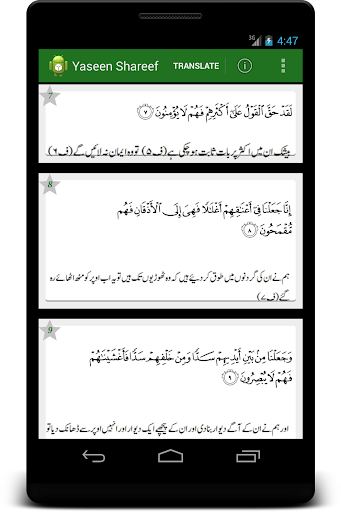 3G 4:47
Yaseen Shareef TRANSLATE
7
لَقَدْ حَقَّ الْقَوْلُ عَلٰۤى اَكْثَرِهِمْ فَهُمْ لَا یُؤْمِنُوْنَ ﴿۷﴾
بیشک ان میں اکثر پر بات ثابت ہوچکی ہے (ف۵) تو وہ ایمان نہ لائیں گے (ف۶)
8
اِنَّا جَعَلْنَا فِیْۤ اَعْنَاقِهِمْ اَغْلٰلًا فَهِیَ اِلَی الْاَذْقَانِ فَهُمْ
مُّقْمَحُوْنَ ﴿۸﴾
ہم نے ان کی گردنوں میں طوق کردیئے ہیں کہ وہ ٹھوڑیوں تک ہیں تو یہ اب اوپر کو منھ اٹھائے رہ
گئے (ف۷)
9
وَجَعَلْنَا مِنْۢ بَیْنِ اَیْدِیْهِمْ سَدًّا وَّمِنْ خَلْفِهِمْ سَدًّا فَاَغْشَیْنٰهُمْ
فَهُمْ لَا یُبْصِرُوْنَ ﴿۹﴾
اور ہم نے ان کے آگے دیوار بنادی اور ان کے پیچھے ایک دیوار اور انہیں اوپر سے ڈھانک دیا تو